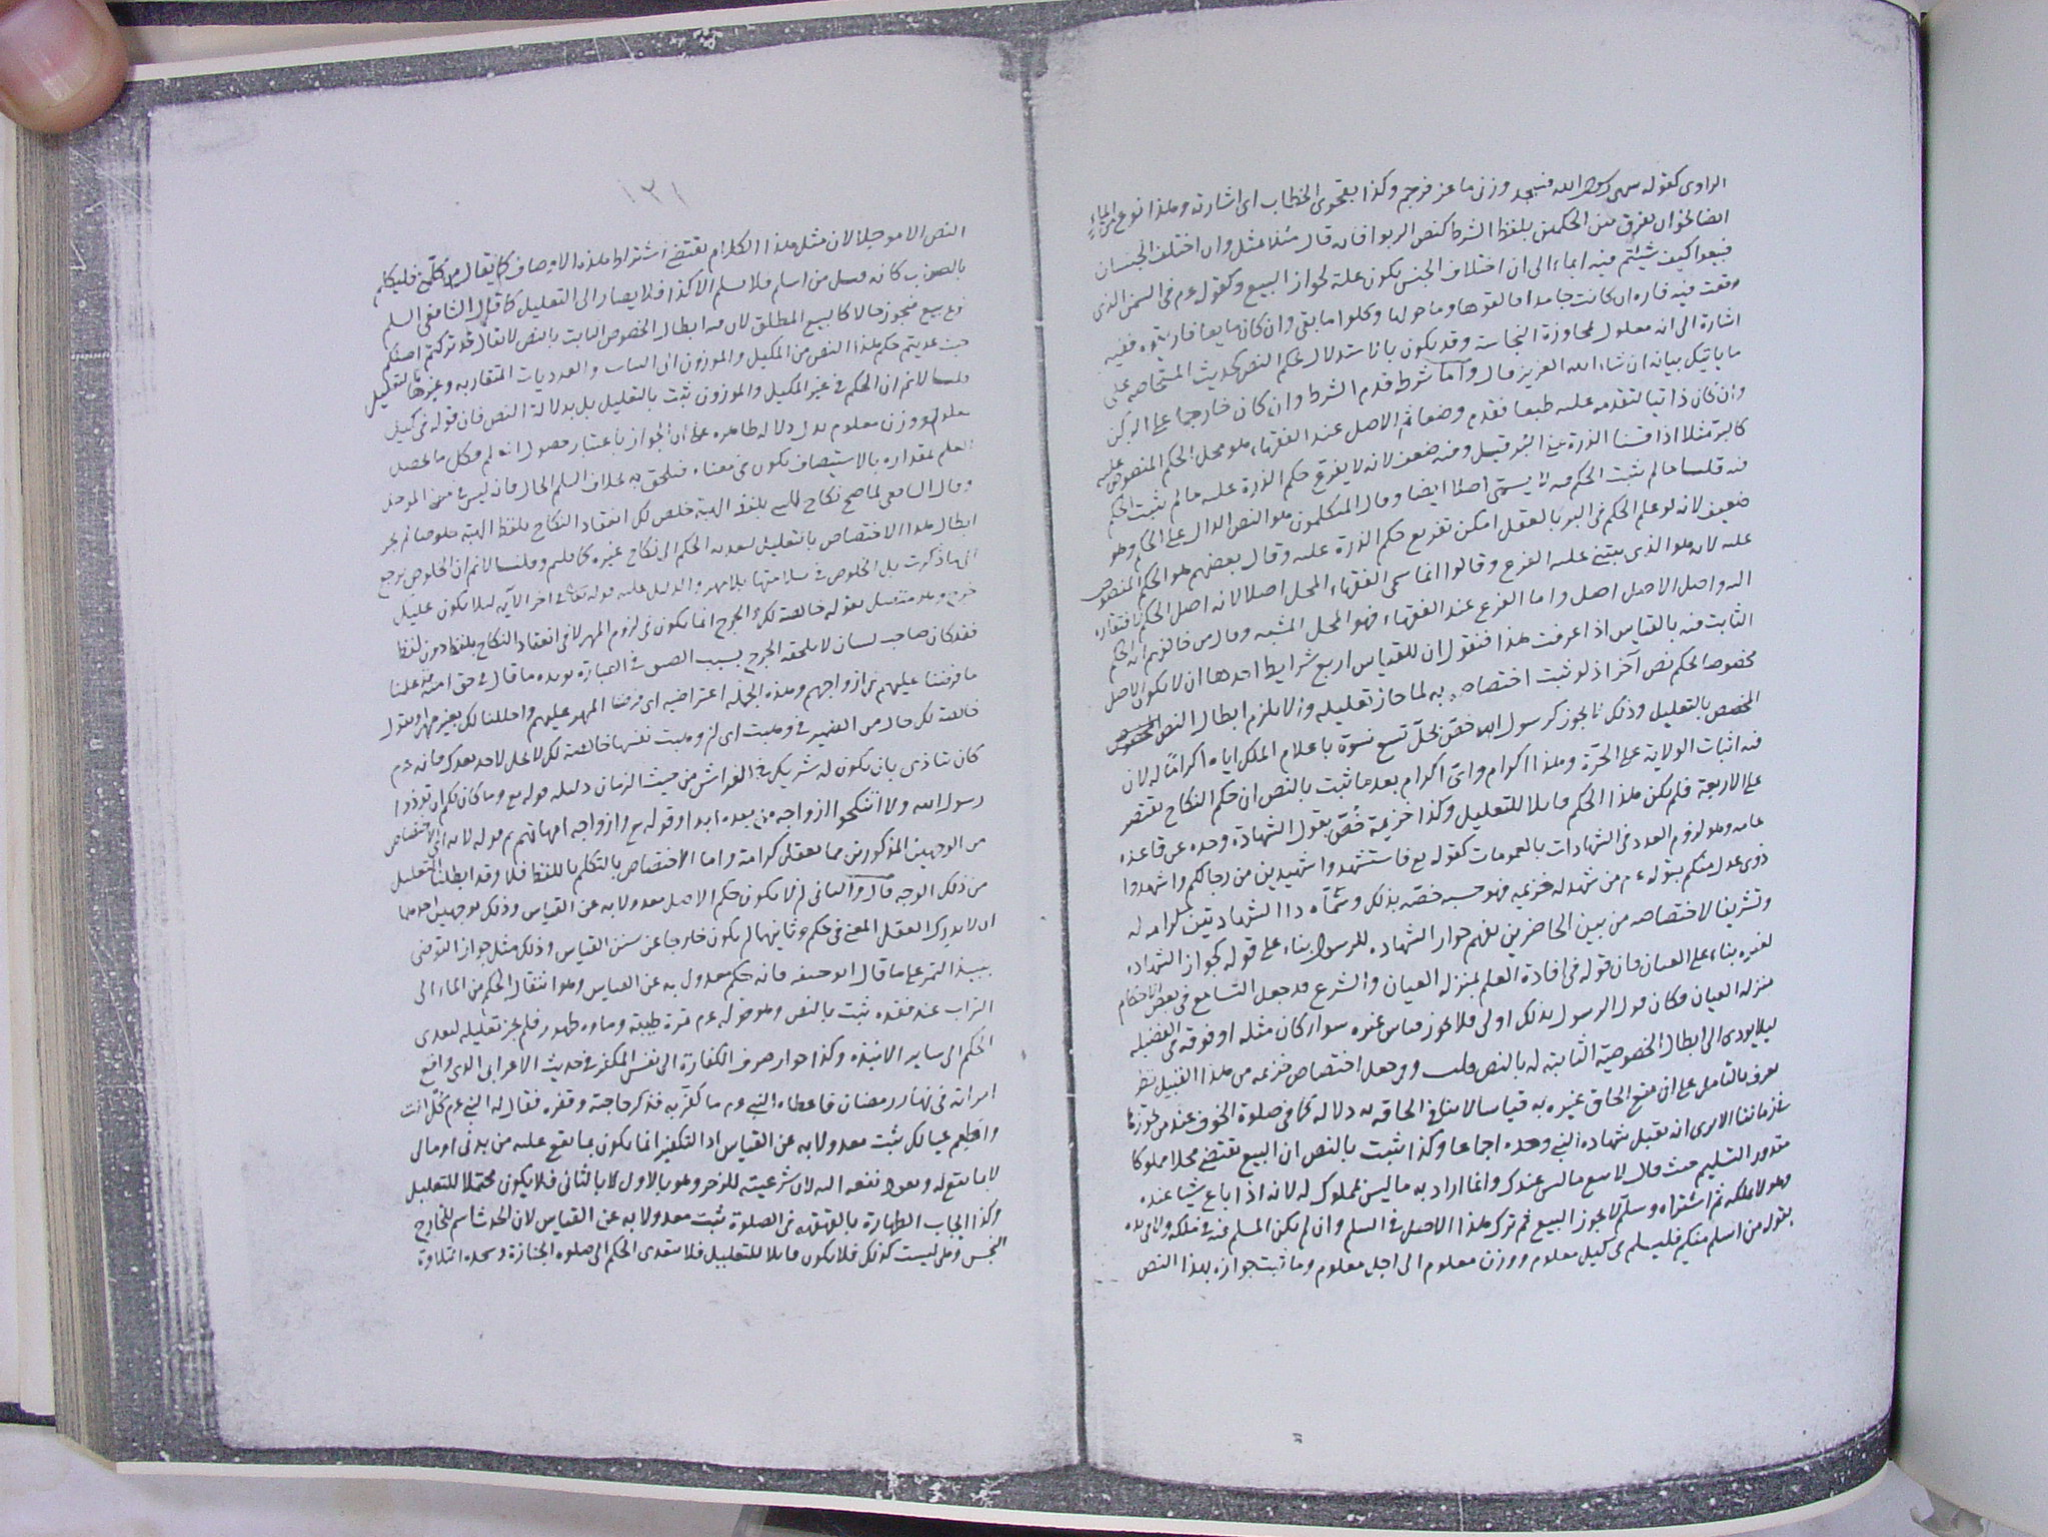 الراوى كقوله سهى رسول الله فسجد وزنى ماعز فرجم وكذا بفحوى الخطاب اى اشارته وهذا نوع من الايماء
ايضا نحو ان يفرق بين الحكمين بلفظ الشرط كنص الربوا فانه قال مثلا بمثل وان اختلف الجنسان
فبيعوا كيف شئتم فيه ايماء الى ان اختلاف الجنس يكون علة لجواز البيع وكقوله عم فى السمن الذى
وقعت فيه فاره ان كانت جامدا فالقوها وما حولها وكلوا ما بقى وان كان مايعا فاريقوه ففيه
اشارة الى انه معلول بمجاوزة النجاسة وقد يكون بالاستدلال بحكم النص كحديث المستحاضه على
ما ياتيك بيانه ان شاء الله العزيز قال واما شرطه قدم الشرط وان كان خارجا على الركن
وان كان ذاتيا لتقدمه عليه طبعا فقدم وضعا ثم الاصل عند الفقهاء هو محل الحكم المنصوص عليه
كالبر مثلا اذا قسنا الذرة على البر قيل وفيه ضعف لانه لا يفرع حكم الذرة عليه ما لم يثبت الحكم
فيه قلنا ما لم يثبت الحكم فيه لا يسمى اصلا ايضا وقال المتكلمون هو النص الدال على الحكم وهو
ضعيف لانه لو علم الحكم فى البر بالعقل امكن تفريع حكم الذرة عليه وقال بعضهم هو الحكم المنصوص
عليه لانه هو الذى يبتنى عليه الفرع وقالوا انما سمى الفقهاء المحل اصلا لانه اصل الحكم لافتقاره
اليه واصل الاصل اصل واما الفرع عند الفقهاء فهو المحل المشبه وقال من خالفهم انه الحكم
الثابت فيه بالقياس اذا عرفت هذا فنقول ان للقياس اربع شرايط احدها ان لا يكون الاصل
مخصوصا لحكم نص آخر اذ لو ثبت اختصاصه به لما جاز تعليله والا يلزم ابطال النص
المخصص بالتعليل وذلك لا يجوز كرسول الله خص بحل تسع نسوة باعلام الملك اياه اكراما له لان
فيه اثبات الولاية على الحرة وهذا اكرام واى اكرام بعد ما ثبت بالنص ان حكم النكاح يقتصر
على الاربعة فلم يكن هذا الحكم قابلا للتعليل وكذا خزيمة خص بقبول الشهادة وحده عن قاعده
عامه وهو لزوم العدد فى الشهادات بالعمومات كقوله تع فاستشهدوا شهيدين من رجالكم واشهدوا
ذوى عدل منكم بقوله عم من شهد له خزيمه فهو حسبه خصه بذلك وسماه ذا الشهادتين كرامه له
وتشريفا لاختصاصه من بين الحاضرين بفهم جواز الشهاده للرسول بناء على قوله كجواز الشهاده
لغيره بناء على العيان فان قوله فى افادة العلم بمنزله العيان والشرع قد جعل التسامع فى بعض الاحكام
منزله العيان فكان قول الرسول بذلك اولى فلا يجوز قياس غيره سواء كان مثله او فوقه فى الفضيله
ليلا يودى الى ابطال الخصوصية الثابته له بالنص قلت وفى جعل اختصاص خزيمه من هذا القبيل نظر
يعرف بالتامل على ان منع الحاق غيره به قياسا لا ينافى الحاقه به دلالة كما فى صلوة الخوف عند من جوزها
فى زماننا الا يرى انه تقبل شهاده النبى وحده اجماعا وكذا ثبت بالنص ان البيع يقتضى محلا مملوكا
مقدور التسليم حيث قال لا تبع ما ليس عندك وانما اراد به ما ليس بمملوك له لانه اذا باع شيا عنده
وهو لا يملكه ثم اشتراه وسلم لا يجوز البيع ثم ترك هذا الاصل فى السلم وان لم يكن المسلم فيه فى ملكه ولا فى يده
بقوله من اسلم منكم فليسلم فى كيل معلوم ووزن معلوم الى اجل معلوم وما ثبت جوازه بهذا النص
١٢١
النص الا موجلا لان مثل هذا الكلام يقتضى اشتراط هذه الاوصاف كما يقال من تكلم فليتكلم
بالصواب كانه قيل من اسلم فلا يسلم الا كذا فلا يصار الى التعليل كما قال الشافعى السلم
نوع بيع فيجوز حالا كالبيع المطلق لان فيه ابطال الخصوص الثابت بالنص لا يقال قد تركتم اصلكم
حيث عديتم حكم هذا النص من المكيل والموزون الى الثياب والعدديات المتقاربه وغيرها بالتعليل
قلنا لانم ان الحكم فى غير المكيل والموزون ثبت بالتعليل بل بدلالة النص فان قوله فى كيل
معلوم ووزن معلوم يدل دلاله ظاهره على ان الجواز باعتبار حصول العلم فكل ما يحصل
العلم بمقداره بالاستيصاف يكون فى معناه فيلحق به بخلاف السلم الحال فانه ليس فى معنى الموجل
وقال الشافعى لما صح نكاح النبى بلفظ الهبة خلص لك انعقاد النكاح بلفظ الهبة خلوصا لم يجز
ابطال هذا الاختصاص بالتعليل لتعديه الحكم الى نكاح غيره كما قلتم وقلنا لانم ان الخلوص يرجع
الى ما ذكرت بل الخلوص فى سلامتها بلا مهر والدليل عليه قوله تعالى فى اخر الآيه ليلا يكون عليك
حرج وهو متصل بقوله خالصة لك والحرج انما يكون فى لزوم المهر لا فى انعقاد النكاح بلفظ دون لفظ
فقد كان صاحب لسان لا يلحقه الحرج بسبب الضيق فى العبارة يويده ما قال فى حق امته قد علمنا
ما فرضنا عليهم فى ازواجهم وهذه الجمله اعتراضيه اى فرضنا المهر عليهم واحللنا لك بغير مهر او نقول
خالصة لك حال من الضمير فى وهبت اى ان وهبت نفسها خالصة لك لا تحل لاحد بعدك فانه عم
كان يتاذى بان يكون له شريك فى الفراش من حيث الزمان دليله قوله تع وما كان لكم ان توذوا
رسول الله ولا ان تنكحوا ازواجه من بعده ابدا وقوله تع وازواجه امهاتهم ثم قوله لانه اى الاختصاص
من الوجهين المذكورين مما يعقل كرامة واما الاختصاص بالتكلم باللفظ فلا وقد ابطلنا التعليل
من ذلك الوجه قال والثانى ان لا يكون حكم الاصل معدولا به عن القياس وذلك بوجهين احدهما
ان لا يدرك العقل المعنى فى حكمه وثانيهما ان يكون خارجا عن سنن القياس وذلك مثل جواز التوضى
بنبيذ التمر على ما قال ابو حنيفه فانه حكم معدول به عن القياس وهو انتقال الحكم من الماء الى
التراب عند فقده ثبت بالنص وهو قوله عم تمرة طيبة وماء طهور فلم يجز تعليله لتعدى
الحكم الى ساير الانبذه وكذا جواز صرف الكفارة الى نفس المكفر فى حديث الاعرابى الذى واقع
امراته فى نهار رمضان فاعطاه النبى عم ما يكفر به فذكر حاجته وفقره فقال له النبى عم كل انت
واطعم عيالك ثبت معدولا به عن القياس اذ التكفير انما يكون بما يقع عليه من بدنى او مالى
لا بما يقع له ويعود نفعه اليه لان شرعيته للزجر وهو بالاول لا بالثانى فلا يكون محتملا للتعليل
وكذا ايجاب الطهارة بالقهقهه فى الصلوة ثبت معدولا به عن القياس لان الحدث اسم للخارج
النجس وهى ليست كذلك فلا يكون قابلا للتعليل فلا يتعدى الحكم الى صلوه الجنازة وسجده التلاوة